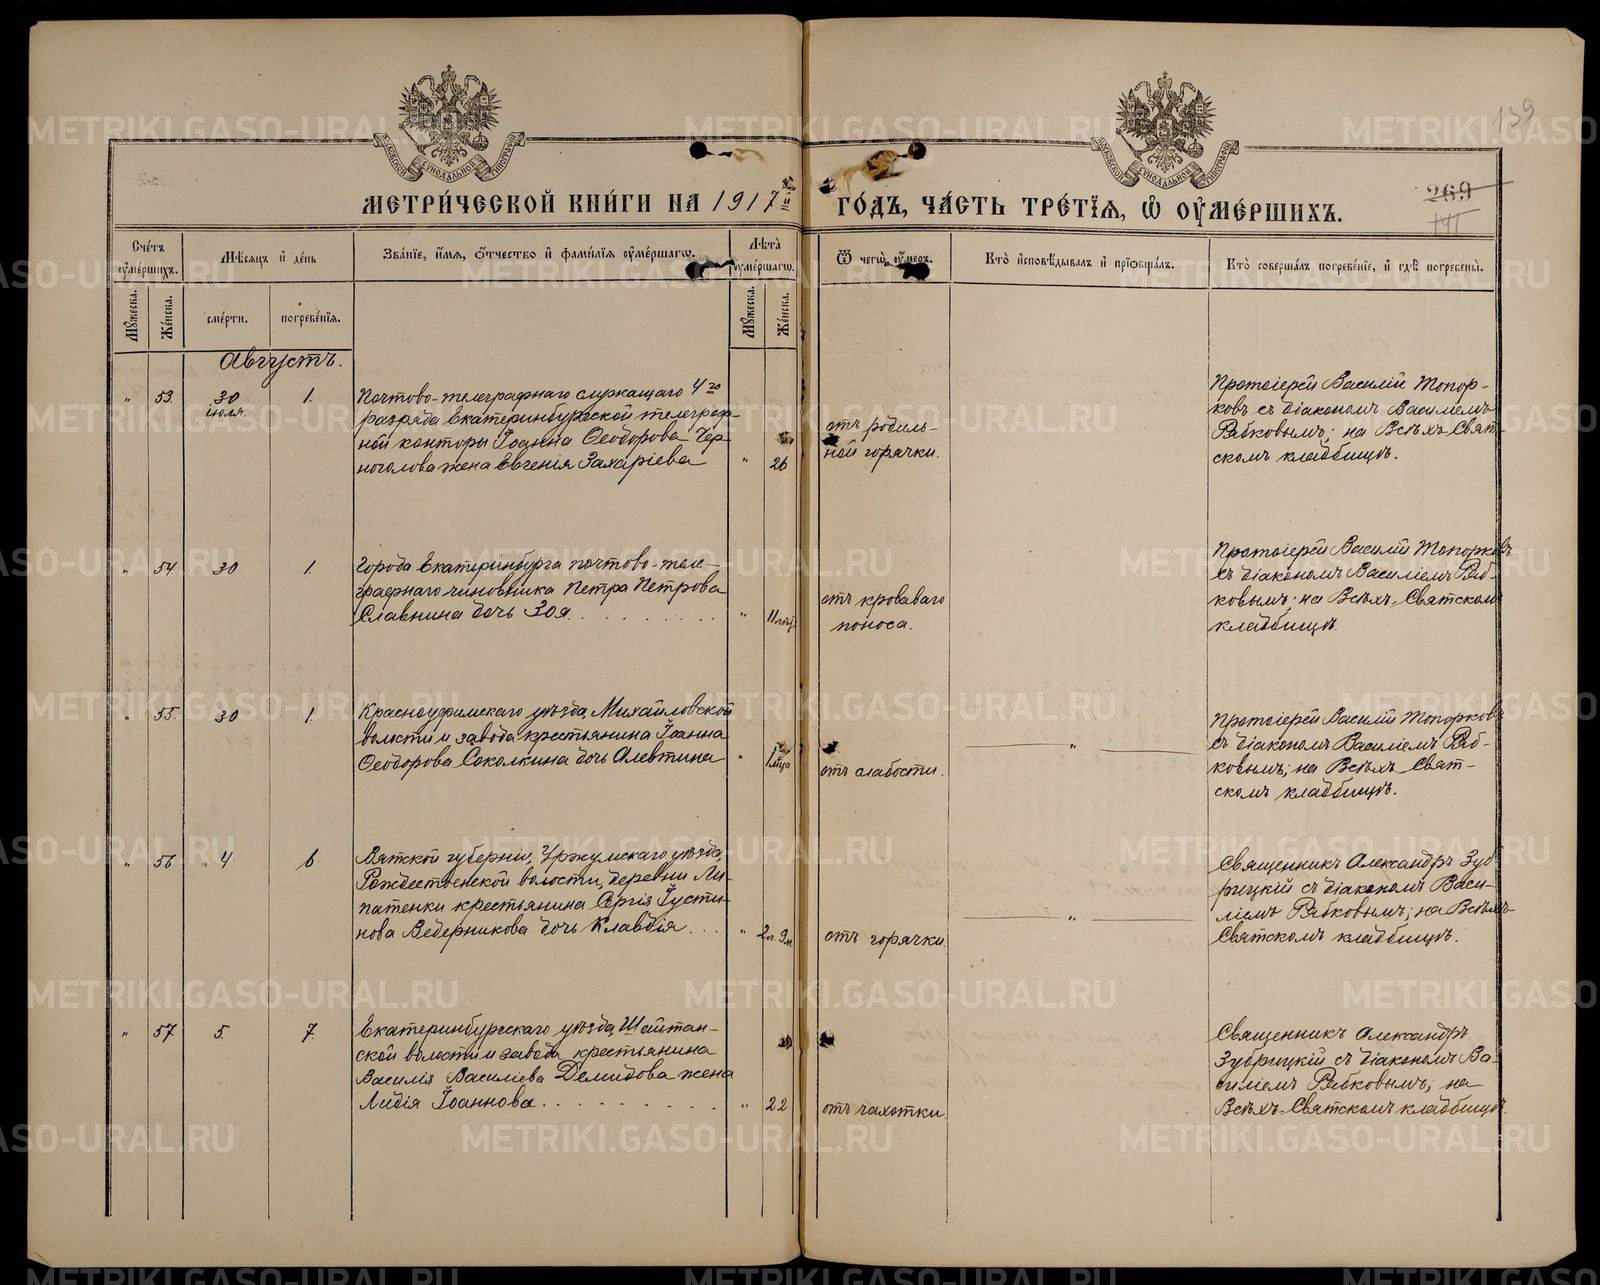 139
МОСКОВСКОЙ СѴНОДАЛЬНОЙ ТИПОГРАФІИ
МОСКОВСКОЙ СѴНОДАЛЬНОЙ ТИПОГРАФІИ
МЕТРИ́ЧЕСКОЙ КНИ́ГИ НА 1917 й ГО́ДЪ, ЧА́СТЬ ТРЕ́ТЇѦ, Ѽ ОУ҆МЕ́РШИХЪ.
269
141
Сче́тъ оу҆ме́ршихъ.
Мѣ́сяцъ и҆ де́нь
Зва́нїе, и҆́мя, ѻ҆́тчество и҆ фами́лїя оу҆ме́ршагѡ.
Лѣ́та оу҆ме́ршагѡ.
Ѿ чегѡ̀ оу҆́меръ.
Кто̀ и҆сповѣ́дывалъ и҆ прїѡбща́лъ.
Кто̀ соверша́лъ погребе́нїе, и҆ гдѣ̀ погребены̀.
Мꙋ́жеска.
Же́нска.
сме́рти.
погребе́нїя.
Мꙋ́жеска.
Же́нска.
Августъ.
" 53. 30 іюля. 1.
Почтово-телеграфнаго служащаго 4го
разряда Екатеринбургской телеграф-
ной конторы Іоанна Ѳеодорова Чер-
ноголова жена Евгенія Захаріева " 26
отъ родиль-
ной горячки.
Протоіерей Василій Топор-
ковъ съ діакономъ Василіемъ
Рябковымъ; на Всѣхъ-Свят-
скомъ кладбищѣ.
" 54. 30 1.
Города Екатеринбурга почтово-теле-
графнаго чиновника Петра Петрова
Славнина дочь Зоя. . . . . . . . . . "
отъ кроваваго
поноса.
Протоіерей Василій Топорковъ
съ діакономъ Василіемъ Ряб-
ковымъ; на Всѣхъ-Святскомъ
кладбищѣ.
" 55. 30 1.
Красноуфимскаго уѣзда, Михайловской
волости и завода крестьянина Іоанна
Ѳеодорова Соколкина дочь Алевтина " 1 м-ца
отъ слабости.
"
Протоіерей Василій Топорковъ
съ діакономъ Василіемъ Ряб-
ковымъ; на Всѣхъ-Свят-
скомъ кладбищѣ.
" 56 4 6
Вятской губерніи, Уржумскаго уѣзда,
Рождественской волости, деревни Ли-
патенки крестьянина Сергія Іусти-
нова Ведерникова дочь Клавдія. . . " 2 г. 9 м.
отъ горячки.
"
Священникъ Александръ Зуб-
рицкій съ діакономъ Васи-
ліемъ Рябковымъ; на Всѣхъ-
Святскомъ кладбищѣ.
" 57 5. 7.
Екатеринбургскаго уѣзда, Шайтан-
ской волости и завода крестьянина
Василія Василіева Демидова жена
Лидія Іоаннова. . . . . . . . . . . " 22
отъ чахотки.
Священникъ Александръ
Зубрицкій съ діакономъ Ва-
силіемъ Рябковымъ; на
Всѣхъ-Святскомъ кладбищѣ.
METRIKI.GASO-URAL.RU